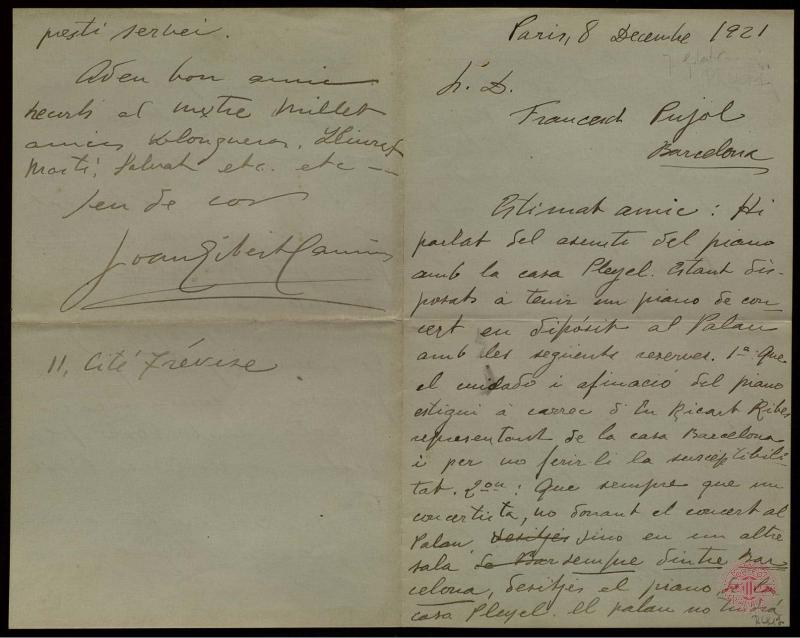 Paris, 8 Decembre 1921
Sr. D.
Francesch Pujol
Barcelona
Estimat amic: Hi
parlat del asumte del piano
amb la casa Pleyel. Estant dis-
posats à tenir un piano de con-
cert en dipósit al Palau
amb les següents reserves. 1ª Que
el cuidado i afinació del piano
estigui à carrec d'En Ricart Ribas
representant de la casa Barcelona
i per no ferir-li la susceptibili-
tat. 2on: Que sempre que un
concertista, no donant el concert al
Palau, desitjés sino en un altre
sala de Bar sempre dintre Bar-
celona, desitjes el piano
casa Pleyel. el palau no tindrá
presti servei.
Adeu bon amic
records al mestre Millet
amics Llongueras, Lliurat
Martí, Salvat etc. etc --
seu de cor
Joan Gibert Camins
11, Cité Trévise